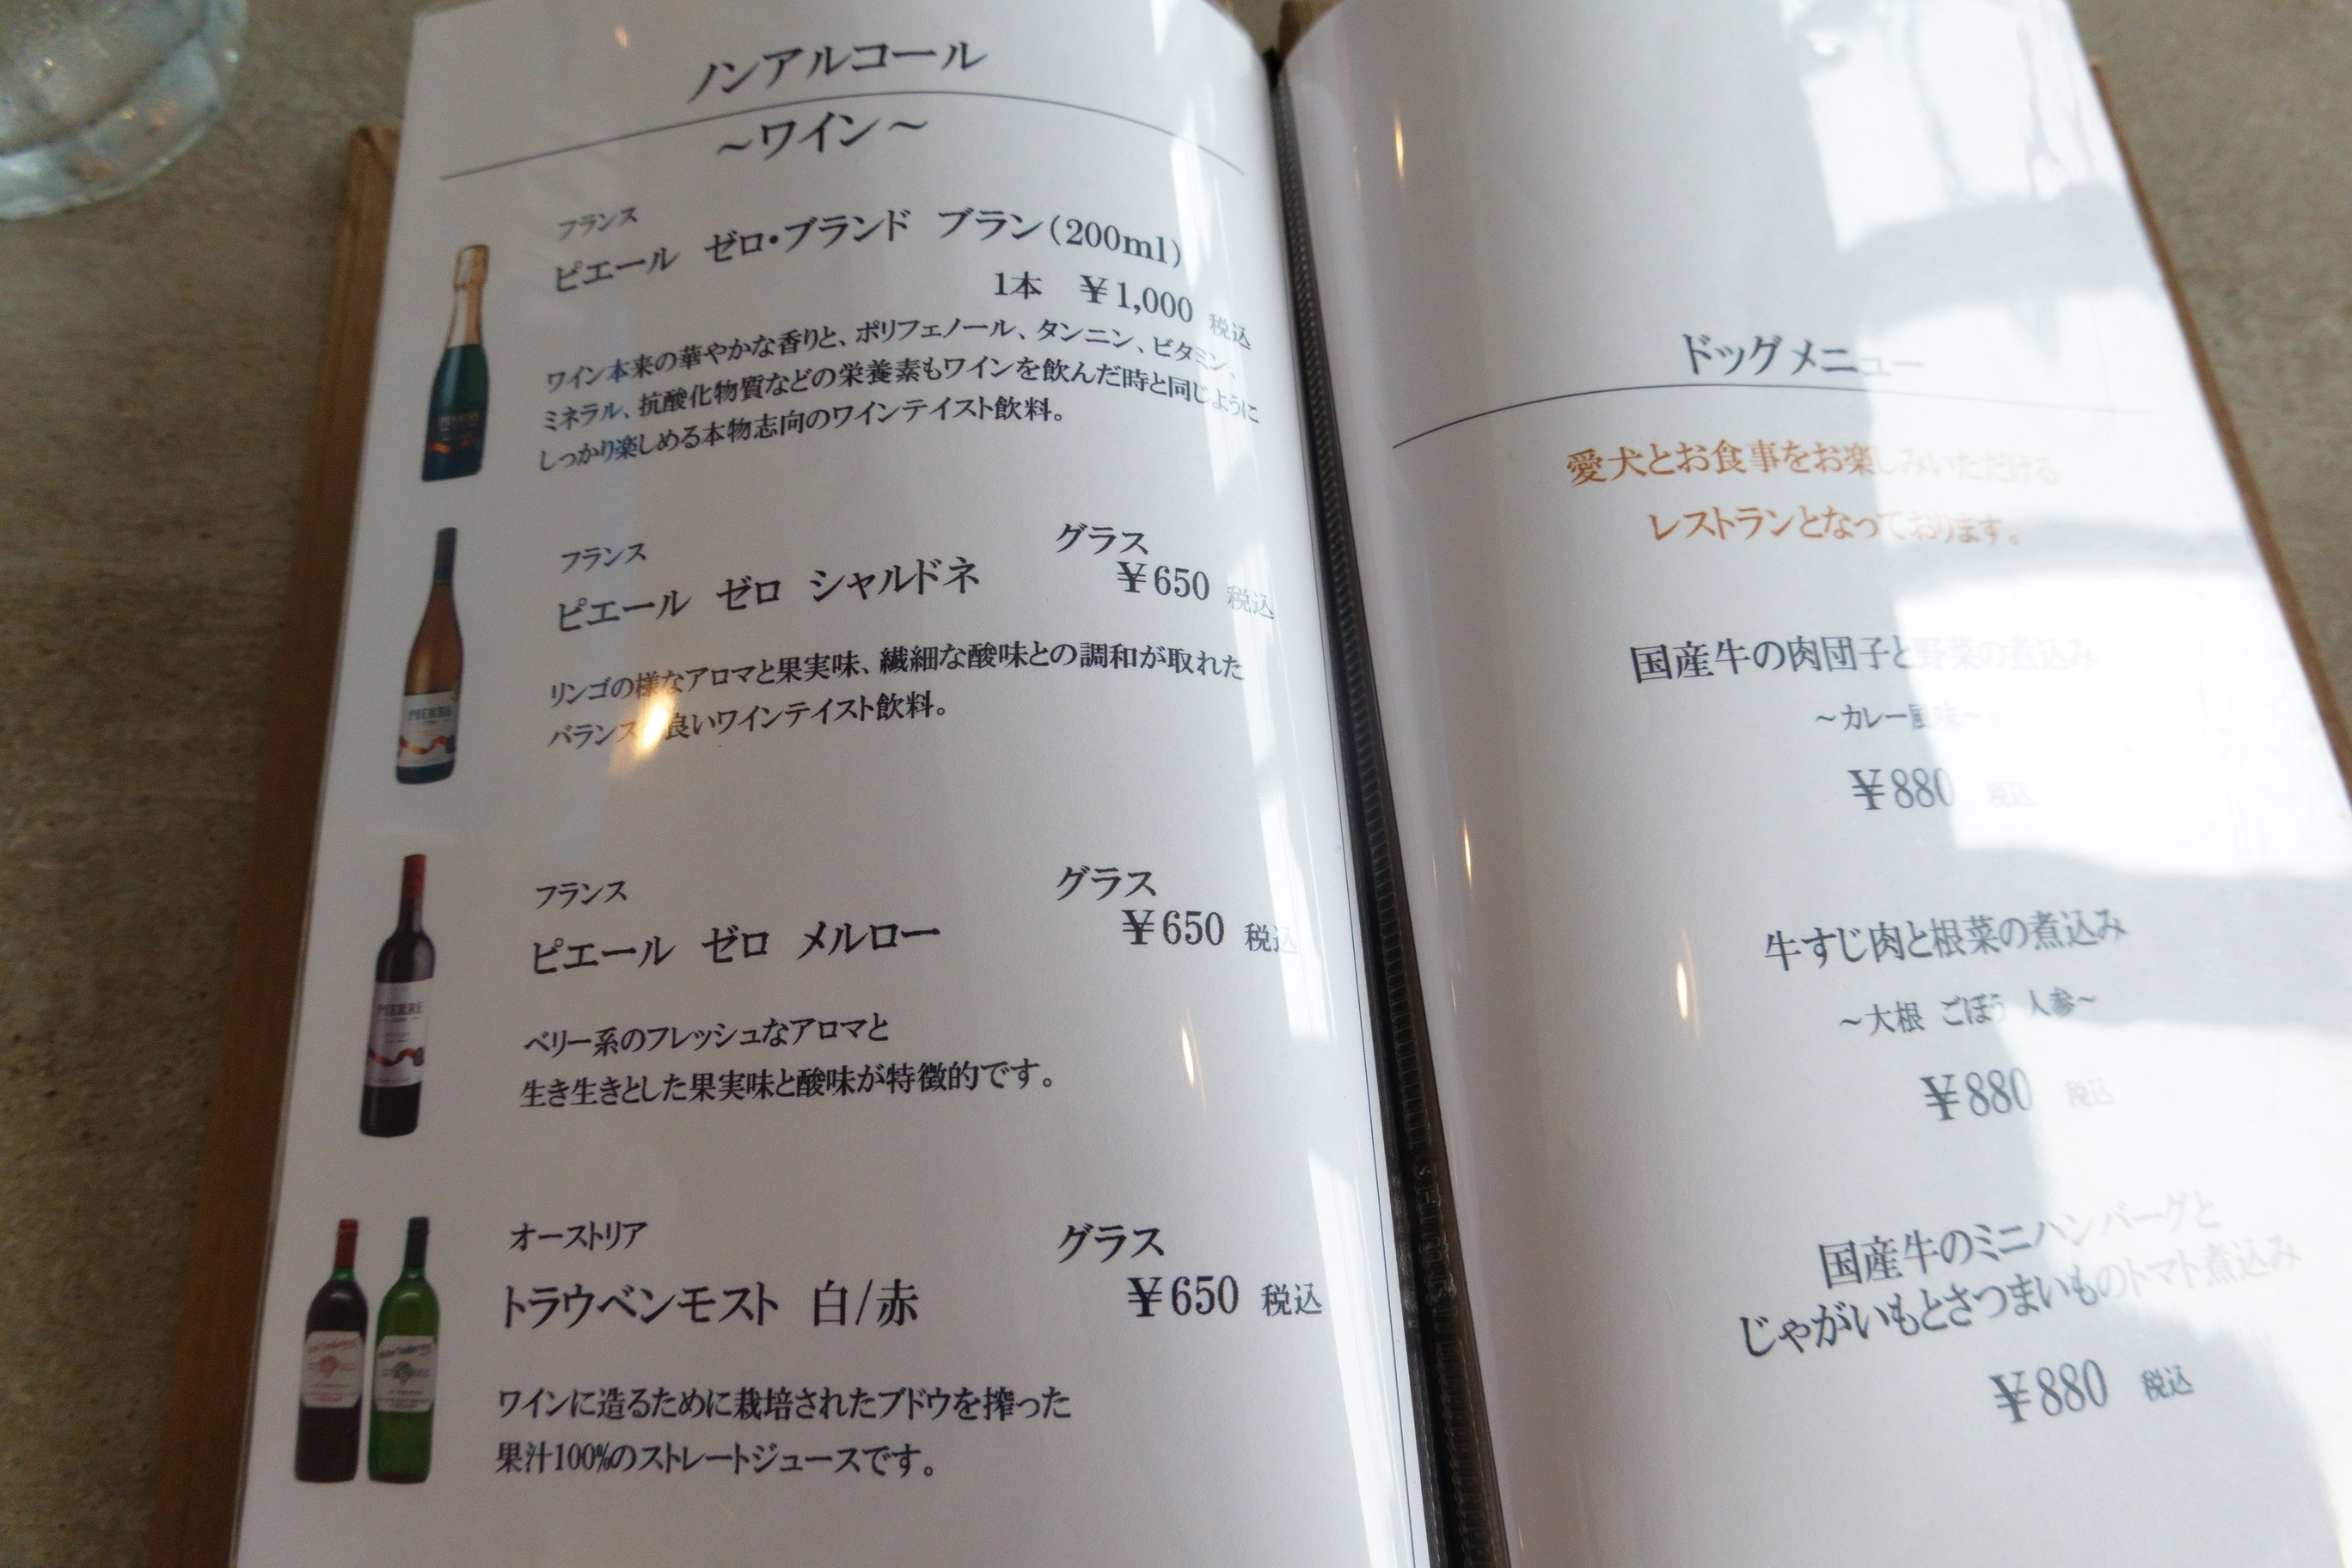 ノンアルコール
～ワイン～
フランス
ピエール ゼロ・ブランド ブラン(200ml)
1本 ¥1,000 税込
ワイン本来の華やかな香りと、ポリフェノール、タンニン、ビタミン、
ミネラル、抗酸化物質などの栄養素もワインを飲んだ時と同じように
しっかり楽しめる本物志向のワインテイスト飲料。
フランス
グラス
ピエール ゼロ シャルドネ ¥650 税込
リンゴの様なアロマと果実味、繊細な酸味との調和が取れた
バランス 良いワインテイスト飲料。
PIERRE
フランス
グラス
ピエール ゼロ メルロー ¥650 税込
ベリー系のフレッシュなアロマと
生き生きとした果実味と酸味が特徴的です。
PIERRE
オーストリア
グラス
トラウベンモスト 白/赤 ¥650 税込
ワインに造るために栽培されたブドウを搾った
果汁100%のストレートジュースです。
ドッグメニュー
愛犬とお食事をお楽しみいただける
レストランとなっております。
国産牛の肉団子と野菜の煮込み
～カレー風味～
¥880 税込
牛すじ肉と根菜の煮込み
～大根 ごぼう 人参～
¥880 税込
国産牛のミニハンバーグと
じゃがいもとさつまいものトマト煮込み
¥880 税込